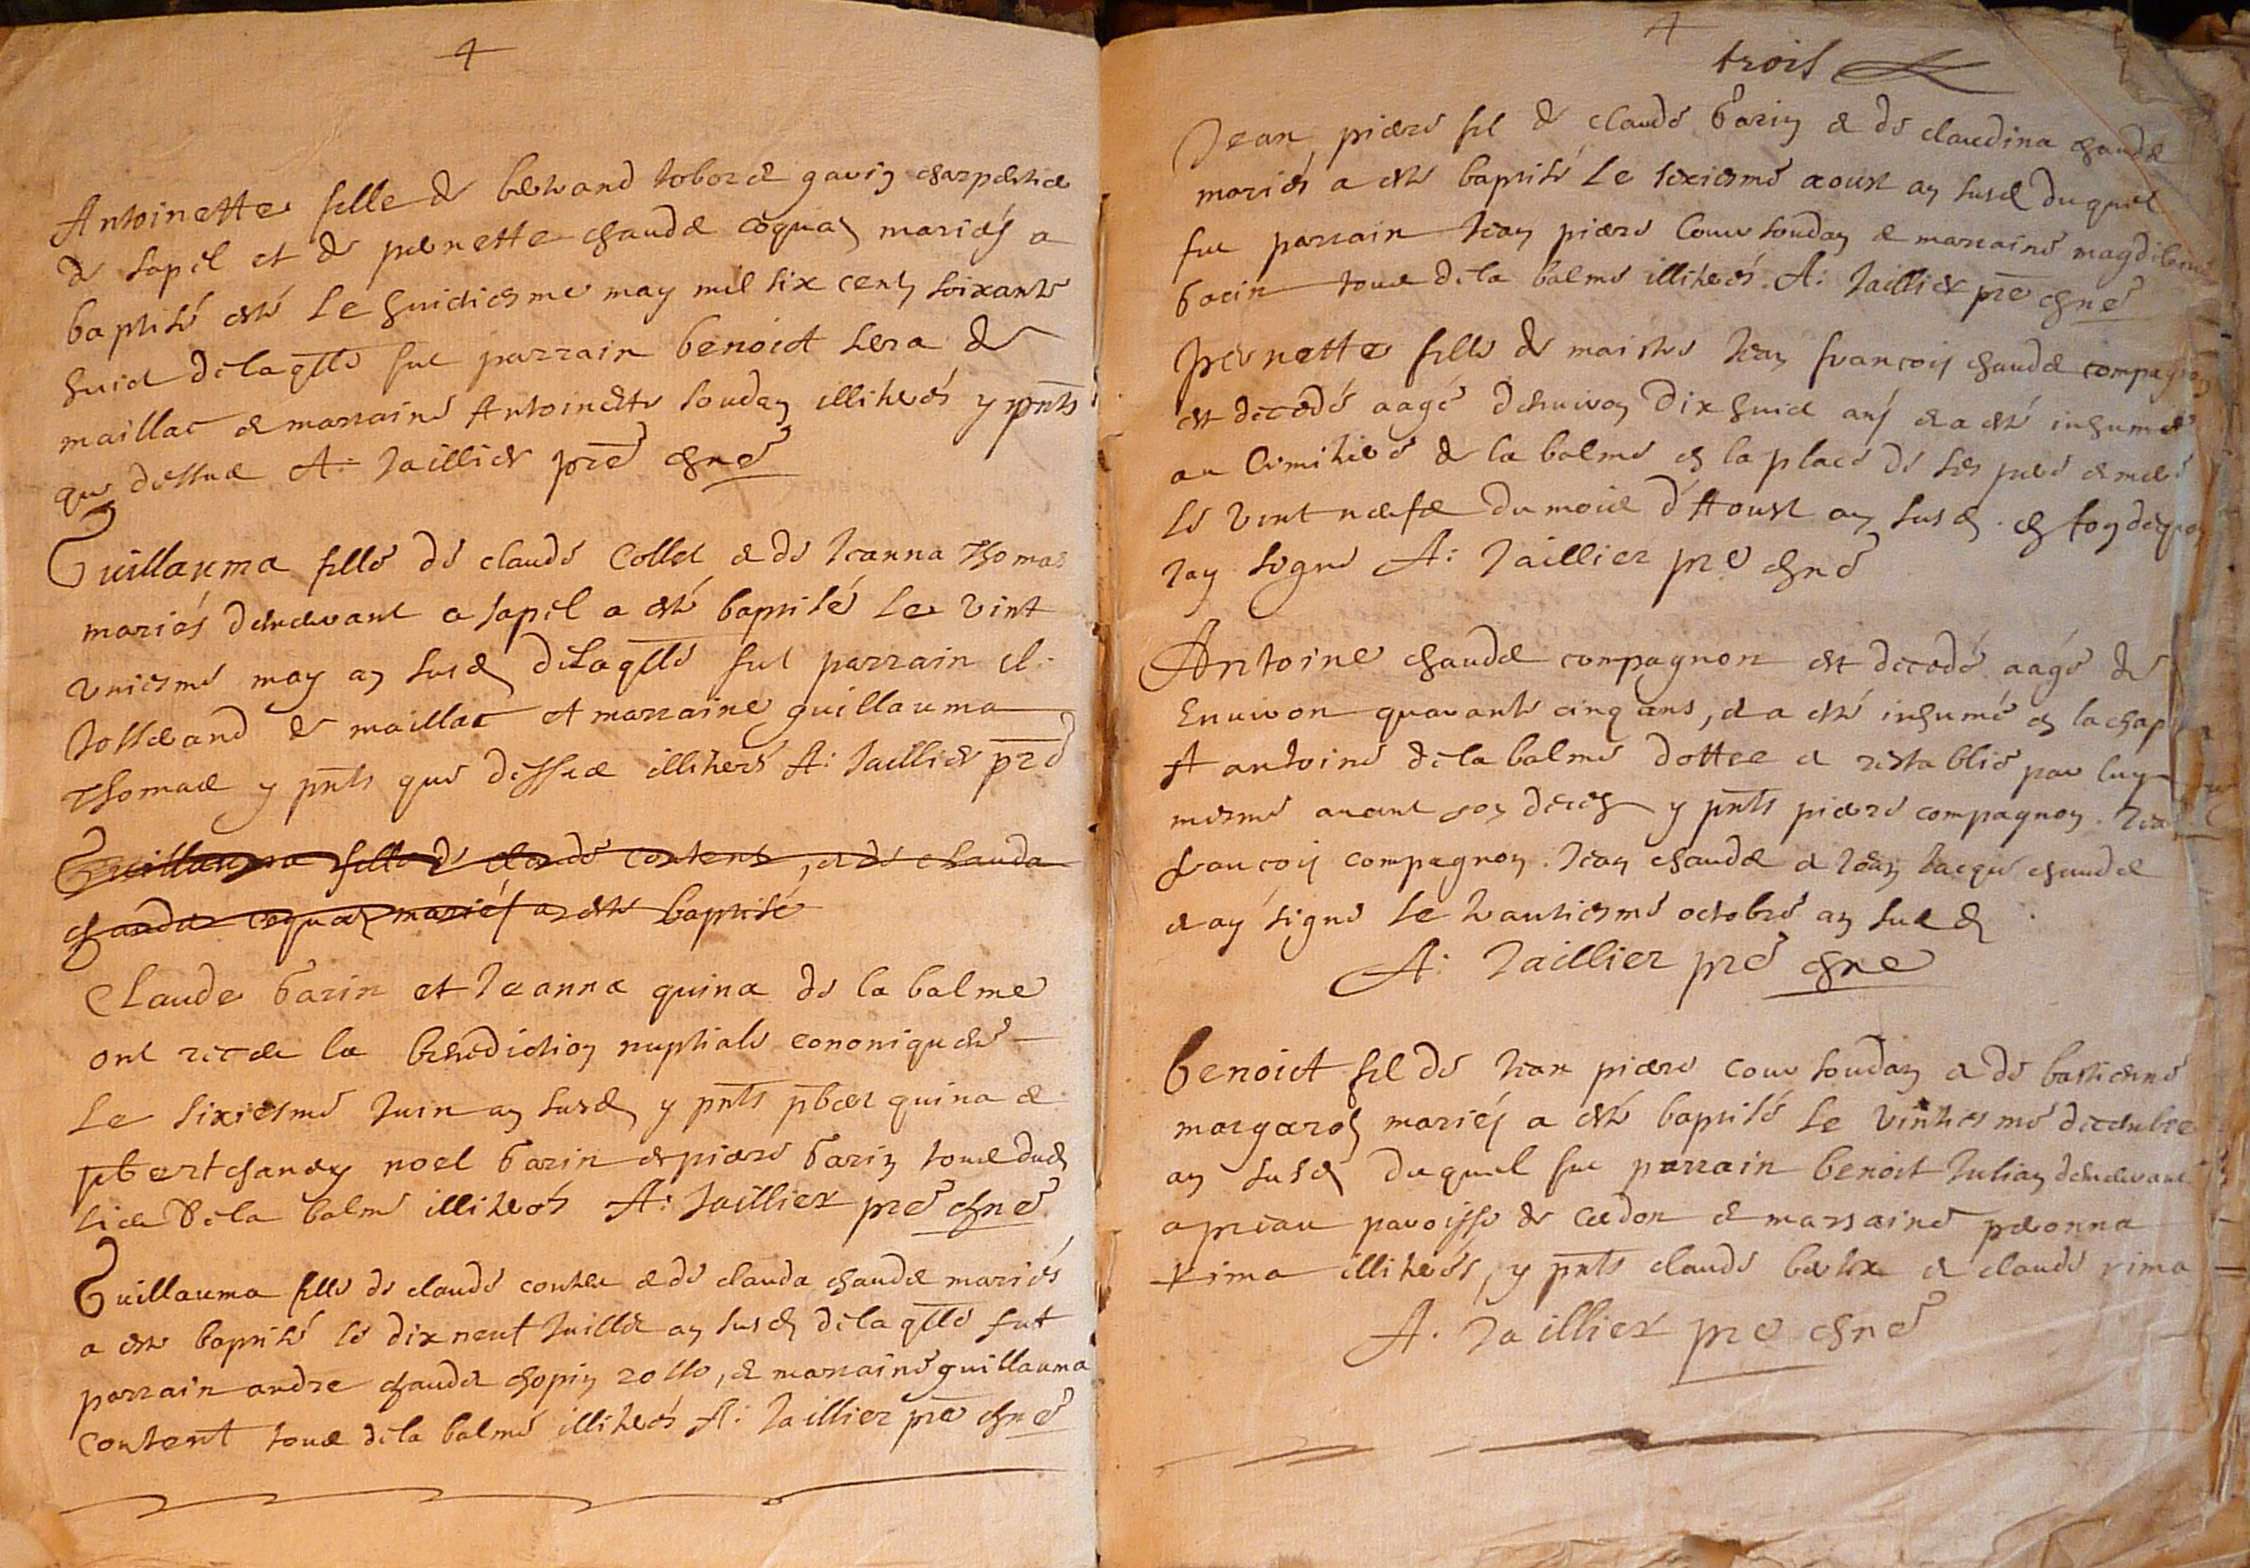 Antoinette fille de bertrand tobert gavin charpentier
de sapel et de pernette chaudet coquaz mariés a
baptisé esté le huictiesme may mil six cents soixante
huict de laqlle fut parrain benoict sera de
maillat et marraine Antoinette soudan illiterés y pnts
que dessus A: Jaillier pre chne
Guillauma fille de claude Collet et de Jeanna Thomas
mariés demeurant a sapel a esté baptisé le vint
uniesme may an susd de laqlle fut parrain cl.
de maillat et marraine guillauma
Thomas y pnts que dessus illiterés A: Jaillier pre
Guillauma fille de claude content, et de clauda
chaudet coquaz mariés a esté baptisé
Claude barin et Jeanna quina de la balme
ont receu la benediction nuptiale cononiquem
le sixiesme Juin an susd y pnts pbert quina et
pbert chaney noel barin et piere barin tous dud
lieu de la balme illiterés A: Jaillier pre chne
Guillauma fille de claude content et de clauda chaudet mariés
a esté baptisé le dix neuf Juillet an susd de laqlle fut
parrain andre chaudet chopin rollo, et marraine guillauma
content tous de la balme illiterés A: Jaillier pre chne
trois
Jean piere fil de claude barin et de claudina chaudet
mariés a esté baptisé le sixiesme aoust an susd duquel
fut parrain Jean piere Cour soudan et marraine magdeleine
barin tous de la balme illiterés. A: Jaillier pre chne
Pernette fille de maistre Jean françois chaudet compagnon
est decedé aagé denviron dix huict ans et a esté inhumée
au Cimitiere de la balme en la place de ses pere et mere
le vint neufe du mois d'Aoust an susd. en foy dequoy
Jay signé A: Jaillier pre chne
Antoine chaudet compagnon est decedé aagé de
Environ quarante cinq ans, et a esté inhumé en la chap
st antoine de la balme dottee et restablie par luy
mesme avant son deces y pnts piere compagnon. Jean
françois compagnon. Jean chaudet et Jean Jacque chaudet
et ay signé le trantiesme octobre an susd
A: Jaillier pre chne
benoict fil de Jean piere cour soudan et de bastienne
margaros mariés a esté baptisé le vintiesme decembre
an susd duquel fut parrain benoict Julian demeurant
a preau paroisse de cerdon et marraine peronna
rima illiterés, y pnts claude et claude rima
A: Jaillier pre chne